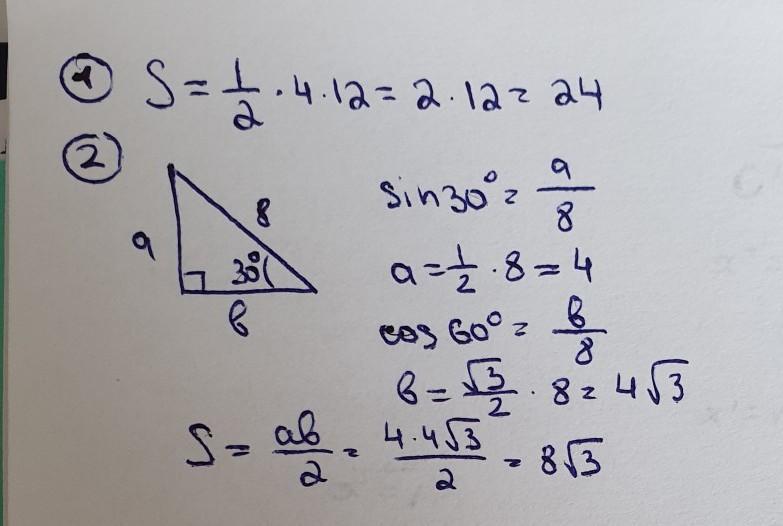 ① S = 1/2 · 4 · 12 = 2 · 12 = 24
②
a
8
30°
в
sin 30° = a/8
a = 1/2 · 8 = 4
cos 60° = в/8
в = √3/2 · 8 = 4√3
S = aв/2 = 4·4√3/2 = 8√3